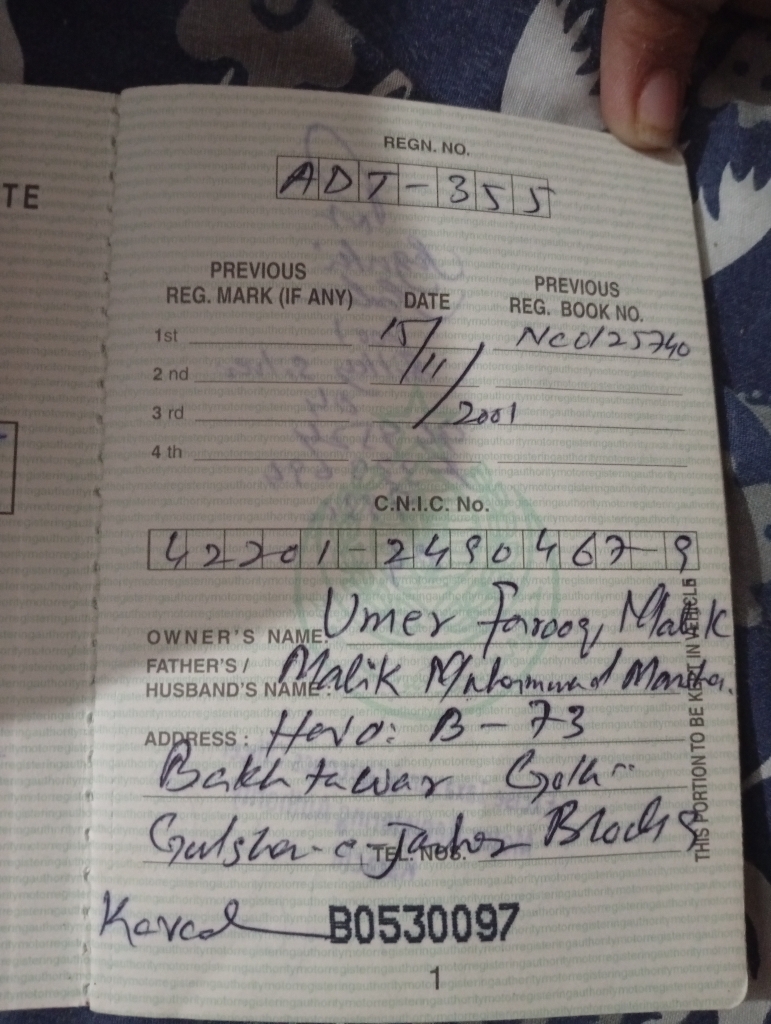 TE
REGN. NO.
ADT-355
PREVIOUS REG. MARK (IF ANY) DATE PREVIOUS REG. BOOK NO.
1st 15/11/2001 Nc0125740
2 nd
3 rd
4 th
C.N.I.C. No.
42201-2490467-9
OWNER'S NAME: Umer Farooq Malik
FATHER'S / HUSBAND'S NAME: Malik Muhammad
ADDRESS: B-73
Bakhtawar Goth
Gulshan-e-Jauhar Block
TEL. NOS.
B0530097
1
THIS PORTION TO BE KEPT IN VEHICLE